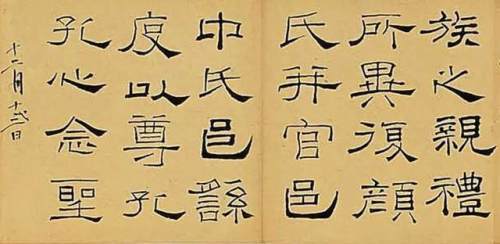 族之親禮
所異復顏
氏并官邑
中氏邑繇
度以尊孔
孔心念聖
十二月十弍日